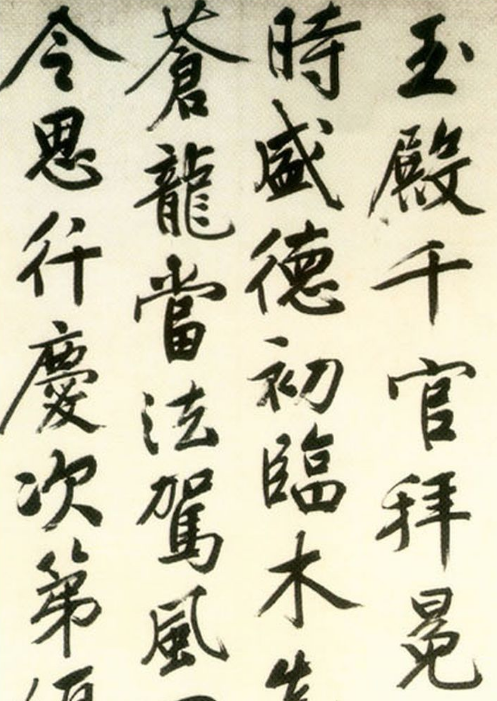 玉殿千官拜冕
時盛德初臨木
蒼龍當法駕風
令思行慶次第